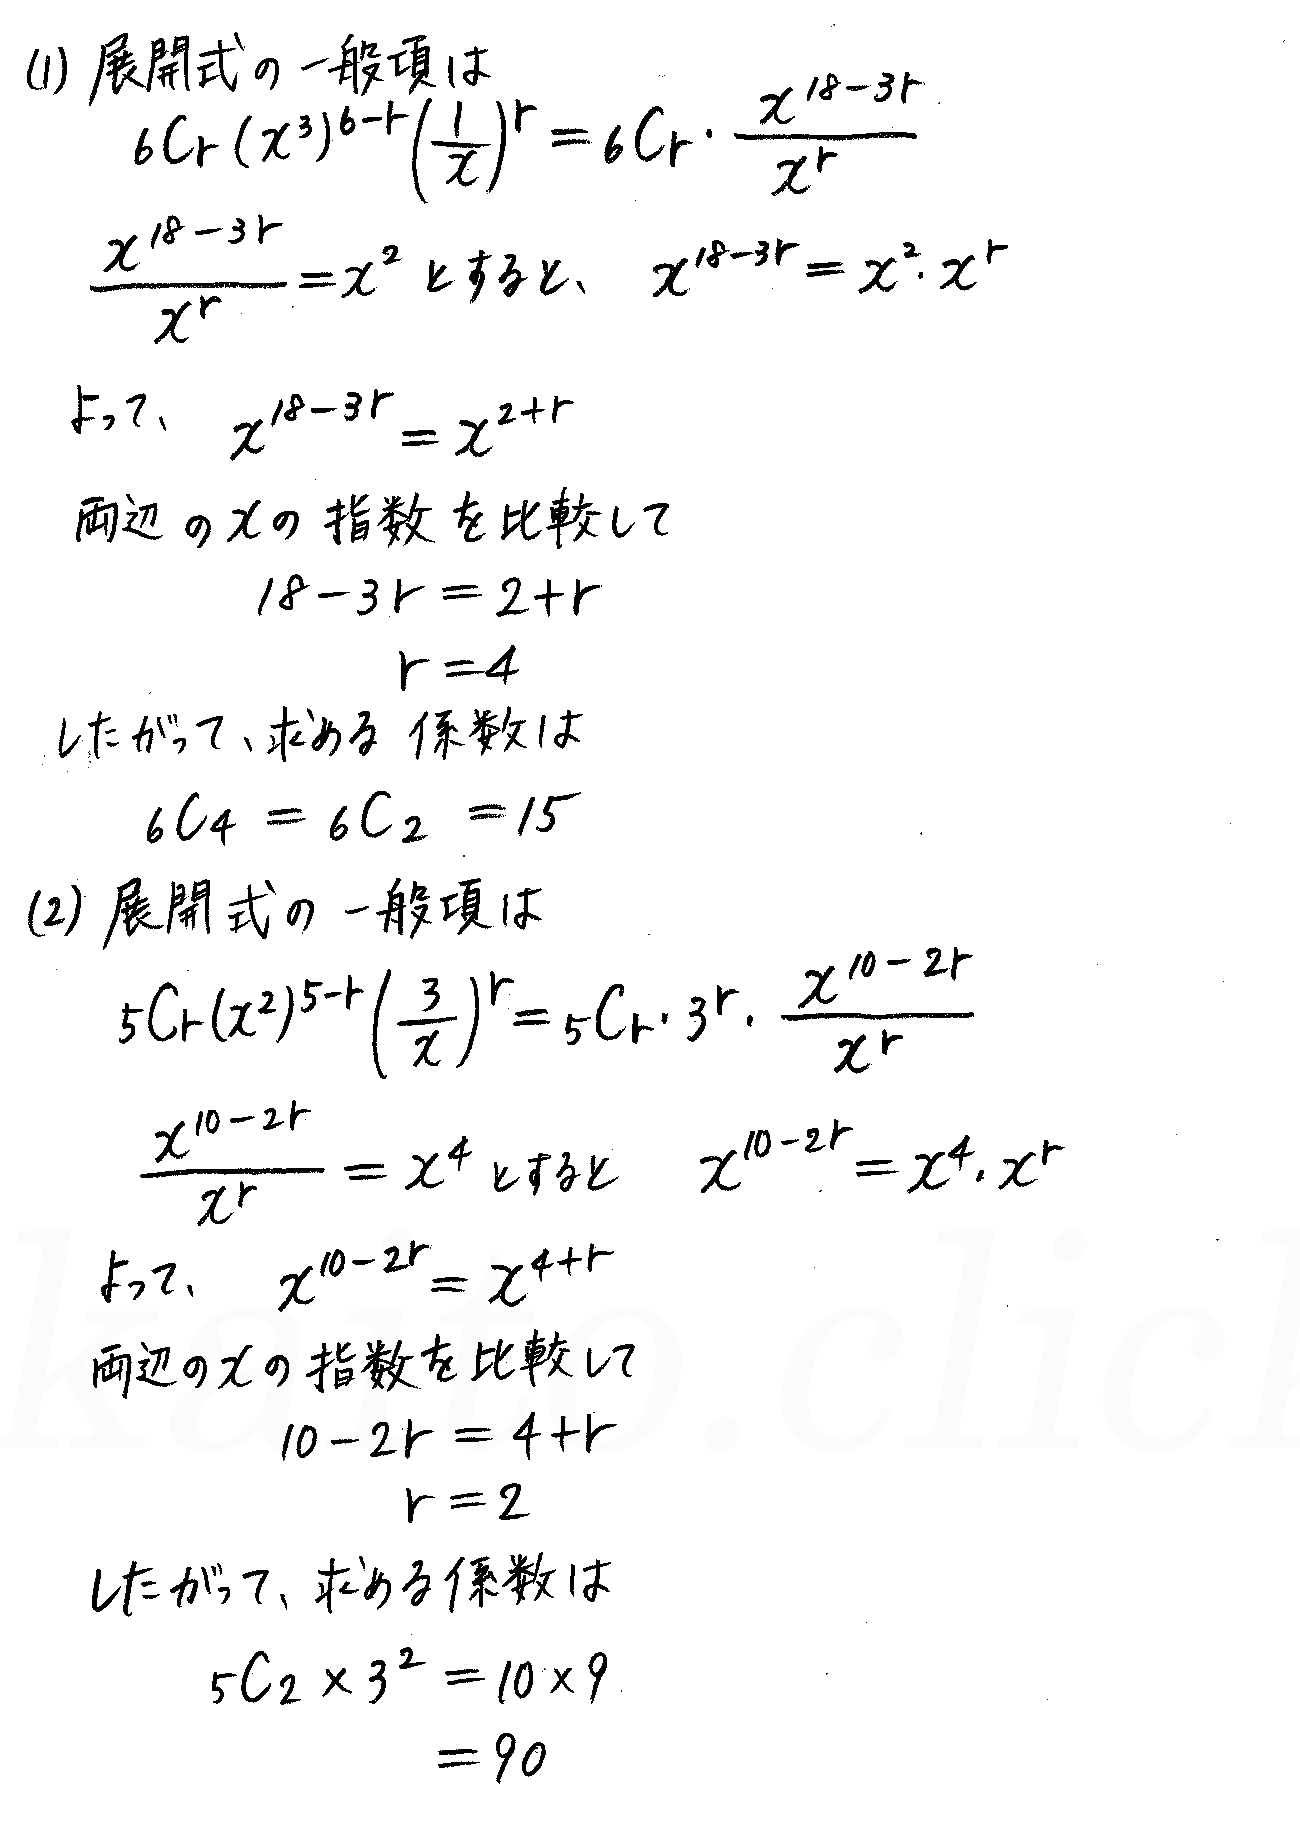 (1) 展開式の一般項は
₆Cᵣ(x³)⁶⁻ʳ(1/x)ʳ = ₆Cᵣ · x¹⁸⁻³ʳ/xʳ
x¹⁸⁻³ʳ/xʳ = x² とすると、 x¹⁸⁻³ʳ = x² · xʳ
よって、 x¹⁸⁻³ʳ = x²⁺ʳ
両辺のxの指数を比較して
18-3r = 2+r
r = 4
したがって、求める係数は
₆C₄ = ₆C₂ = 15
(2) 展開式の一般項は
₅Cᵣ(x²)⁵⁻ʳ(3/x)ʳ = ₅Cᵣ · 3ʳ · x¹⁰⁻²ʳ/xʳ
x¹⁰⁻²ʳ/xʳ = x⁴ とすると x¹⁰⁻²ʳ = x⁴ · xʳ
よって、 x¹⁰⁻²ʳ = x⁴⁺ʳ
両辺のxの指数を比較して
10-2r = 4+r
r = 2
したがって、求める係数は
₅C₂ × 3² = 10 × 9
= 90
kaito.click